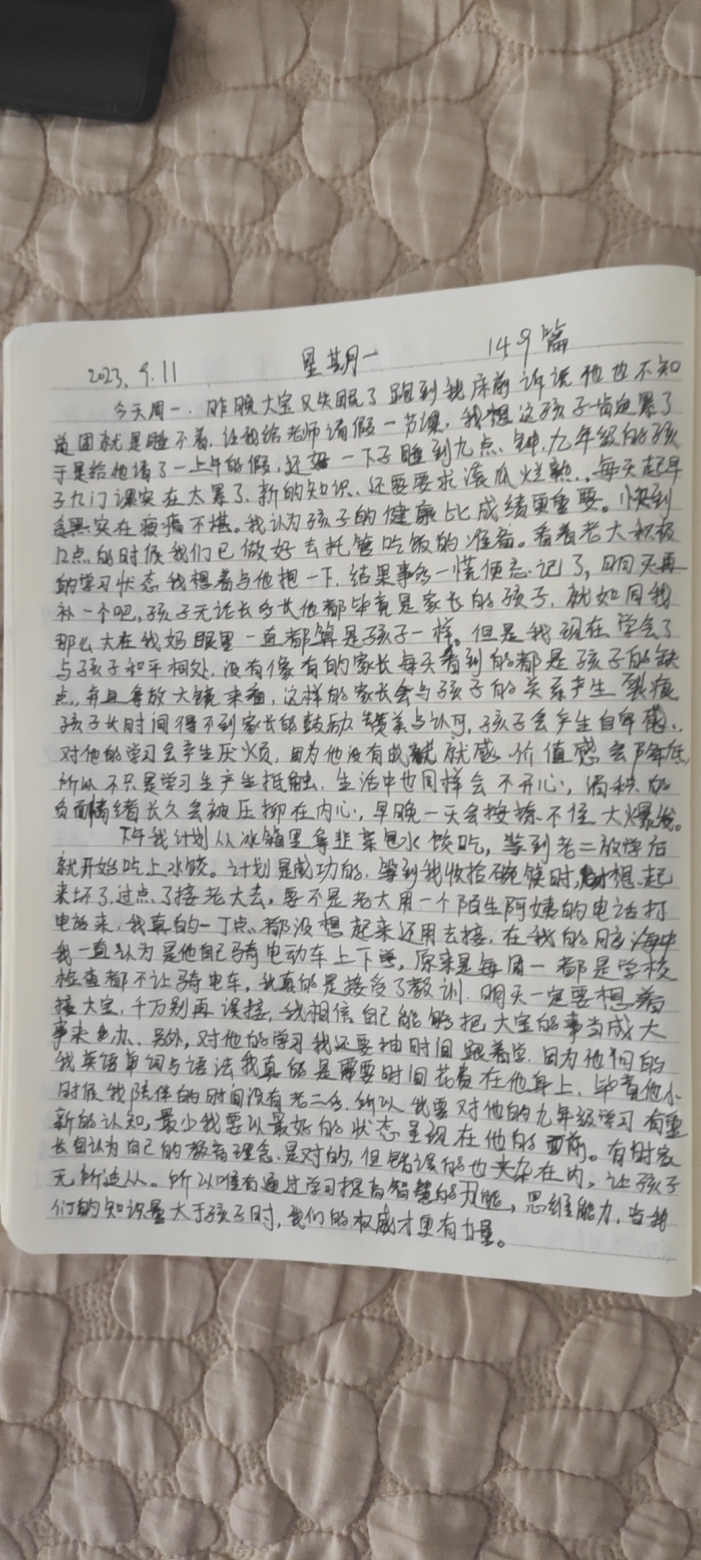 2023.9.11 星期一 149篇
今天周一,昨晚大宝又失眠了跑到我床前诉说他也不知
道因就是睡不着,让我给老师请假一节课,我想这孩子肯定累了
于是给他请了一上午的假,还好一下子睡到九点钟,九年级的孩
子九门课实在太累了,新的知识,还要要求滚瓜烂熟,每天起早
实在疲惫不堪。我认为孩子的健康比成绩更重要。快到
12点的时候我们已做好去托管吃饭的准备。看着老大积极
的学习状态我想着与他抱一下,结果事多一慌便忘记了,明天再
补一个吧,孩子无论长多大他都毕竟是家长的孩子,就如同我
那么大在我妈眼里一直都算是孩子一样。但是我现在学会了
与孩子和平相处,没有像有的家长每天看到的都是孩子的缺
点,并且拿放大镜来看,这样的家长会与孩子的关系产生裂痕
孩子长时间得不到家长的鼓励赞美与认可,孩子会产生自卑感,
对他的学习会产生厌烦,因为他没有成就感价值感会降低,
所以不只是学习生产生抵触,生活中也同样会不开心,囤积的
负面情绪长久会被压抑在内心,早晚一天会按捺不住大爆发。
下午我计划从冰箱里拿韭菜包水饺吃,等到老二放学后
就开始吃上水饺。计划是成功的,等到我收拾碗筷时,才想起
来坏了,过点了接老大去,要不是老大用一个陌生阿姨的电话打
电话来,我真的一丁点都没想起来还用去接,在我的脑海中
我一直认为是他自己骑电动车上下学,原来是每周一都是学校
检查都不让骑电车,我真的是接受了教训,明天一定要想着
接大宝,千万别再误接,我相信自己能够把大宝的事当成大
事来办、另外,对他的学习我还要抽时间跟着学,因为他们的
我英语单词与语法我真的是需要时间花费在他身上,毕竟他小
时候我陪伴的时间没有老二多,所以我要对他的九年级学习有重
新的认知,最少我要以最好的状态呈现在他的面前。有时家
长自认为自己的教育理念是对的,但错误的也夹杂在内,让孩子
无所适从。所以唯有通过学习提高智慧的,思维能力,当我
们的知识量大于孩子时,我们的权威才更有力量。